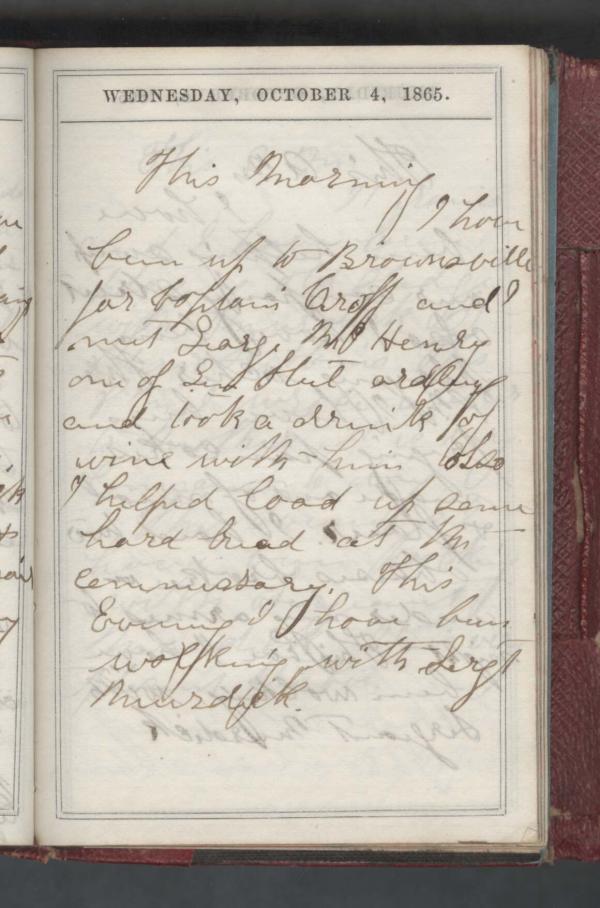 WEDNESDAY, OCTOBER 4, 1865.
This Morning
I have
been up to Brownsville
for Captain Croff and I
met George Mc Henry
one of Gen orderly
and took a drink of
wine with him also
I helped load up some
hard bread at the
commissary. This
Evening I have been
walking with Sergt
Murdick.